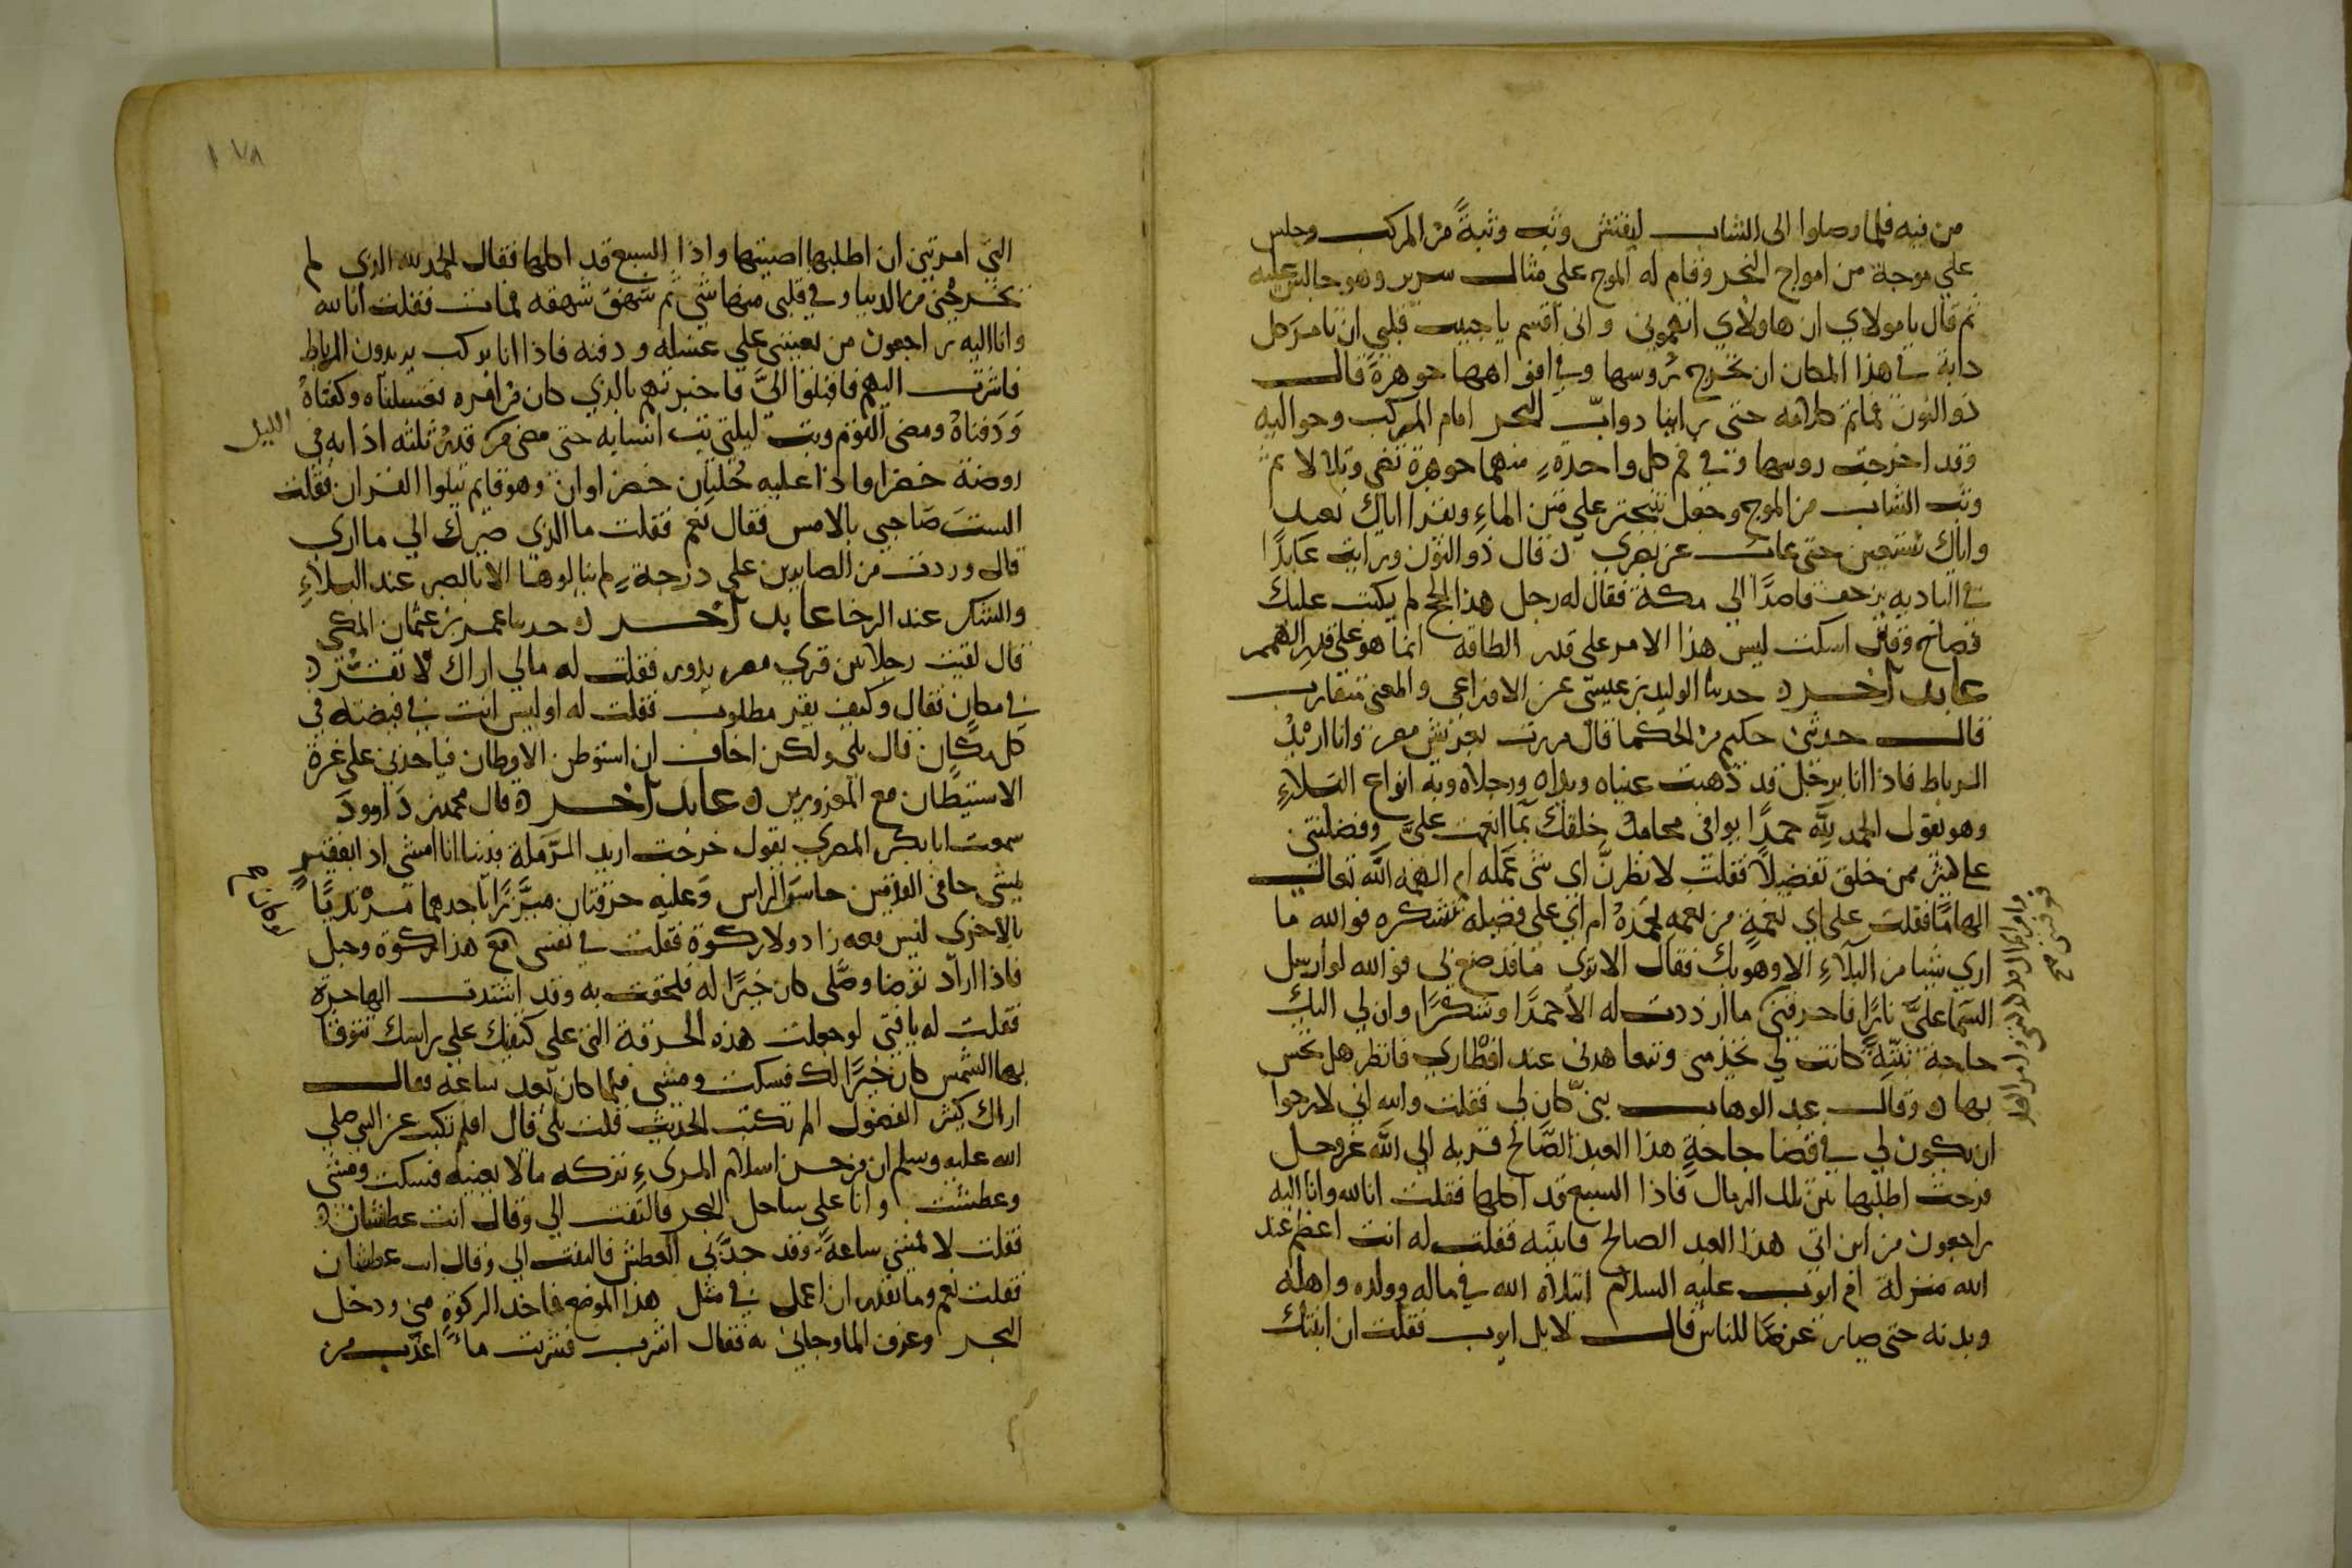 من فيه فلما وصلوا الى الشاب ليفتش وثب وثبةً من المركب وجلس
على موجة من امواج البحر وقام له الموج على مثال سرير وهو جالس عليه
ثم قال يا مولاي ان هاولاي اتهموني واني اقسم يا حبيب قلبي ان تامر كل
دابة في هذا المكان ان تخرج رؤسها وفي افواهها جوهرة قال
ذو النون فما تم كلامه حتى راينا دوابّ البحر امام المركب وحواليه
وقد اخرجت روسها وفي فم كل واحدة منها جوهرة تضي وتلالا ثم
وثب الشاب من الموج وجعل يتبختر على متن الماءِ ويقرا اياك نعبد
واياك نستعين حتى غاب عن بصري ه قال ذو النون ورايت عابدًا
في الباديه يزحف قاصدًا الى مكة فقال له رجل هذا الحج لم يكتب عليك
فصاح وقال اسكت ليس هذا الامر على قدر الطاقه انما هو على قدر الهمم
عابد آخر ه حدثنا الوليد بن عيسى عن الاوزاعي والمعنى متقارب
قال حدثني حكيم من الحكما قال مررت بعريش مصر وانا اريد
الرباط فاذا انا برجل قد ذهبت عيناه ويداه ورجلاه وبه انواع البلاءِ
وهو يقول الحمد لله حمدًا يوافى محامد خلقك بما انعمت عليَّ وفضلتني
على كثير ممن خلق تفضيلًا فقلت لانظرنّ اي شي عمله ام الهمه الله تعالى
الهامًا فقلت على اي نعمةٍ من نعمه تحمدهُ ام اي على فضيله تشكره فوالله ما
ارى شيا من البلآءِ الا وهو بك فقال الا ترى ما قد صنع بي فوالله لو ارسل
السما عليَّ نارًا فاحرقتني ما ازددت له الا حمدًا وشكرًا وان لي اليك
حاجة بُنيّةً كانت لي تخدمني وتتعاهدني عند افطاري فانظر هل تحس
بها ه وقال عبد الوهاب بنيّ كان لي فقلت والله اني لارجوا
ان يكون لي في قضا حاجةِ هذا العبد الصّالح قربه الى الله عز وجل
فرحت اطلبها بين تلك الرمال فاذا السبع قد اكلها فقلت انا لله وانا اليه
راجعون من اين اتى هذا العبد الصالح فاتيته فقلت له انت اعظم عند
الله منزلة ام ايوب عليه السلام ابتلاه الله في ماله وولده واهله
وبدنه حتى صار غرضًا للناس قال لا بل ايوب فقلت ان ابنتك
التي امرتني ان اطلبها اصبتها واذا السبع قد اكلها فقال الحمد لله الذي لم
يخرجني من الدنيا وفي قلبي منها شي ثم شهق شهقه فمات فقلت انا لله
وانا اليه راجعون من يعينني على غسله ودفنه فاذا انا بركب يريدون الرباط
فاشرت اليهم فاقبلوا اليَّ فاخبرتهم بالذي كان من امره فغسلناه وكفناهُ
وَدَفناهُ ومضى القوم وبت ليلتي في انسابه حتى مضى من قدر ثلثه اذا به في
الليل
روضة خضرا واذا عليه حُلتان خضراوان وهو قايم يتلوا القران فقلت
الستَ صَاحبي بالامس فقال نعم فقلت ما الذي صيرك الى ما ارى
قال وردت من الصابرين على درجة لم ينالوها الا بالصبر عند البلاءِ
والشكر عند الرخا عابد آخر ه حدثنا عمر بن عثمان المكي
قال لقيت رجلا من قرى مصر يدور فقلت له مالي اراك لا تقر
في مكانٍ فقال وكيف يقر مطلوب فقلت له اوليس انت في قبضته في
كل مكان قال بلى ولكن اخاف ان استوطن الاوطان فياخذني على غرة
الاستيطان مع المغرورين ه عابد آخر ه قال محمد بن دَاوودَ
سمعت ابا بكر المصري يقول خرجت اريد الرَّملة فبينا انا امشي اذ انا بفقير
يمشي حافي القدمين حاسر الراس وَعليه خرقتان متّزرًا باحدهما مرتديًا
بالاخرى ليس معه زاد ولا ركوة فقلت في نفسي لو كان مع هذا ركوة وحبل
فاذا اراد توضا وصَلّى كان خيرًا له فلحقت به وقد اشتدت الهاجرة
فقلت له يا فتى لو جعلت هذه الخرقة التي على كتفيك على راسك تتوقا
بها الشمس كان خيرًا لك فسكت ومشى فلما كان بعد ساعه فقال
اراك كثير الفضول الم تكتب الحديث قلت بلى قال افلم تكتب عن النبي صلى
الله عليه وسلم ان من حسن اسلام المرىءِ تركه ما لا يعنيه فسكت ومشى
وعطشت وانا على ساحل البحر فالتفت الي وقال انت عطشان
فقلت لا فمشى ساعةً وقد جدّ بي العطش فالتفت الي وقال انت عطشان
فقلت نعم وما تقدر ان اعمل في مثل هذا الموضع فاخذ الركوة مني ودخل
البحر وغرف الما وجاني به فقال اشرب فشربت ماءً اعذب من